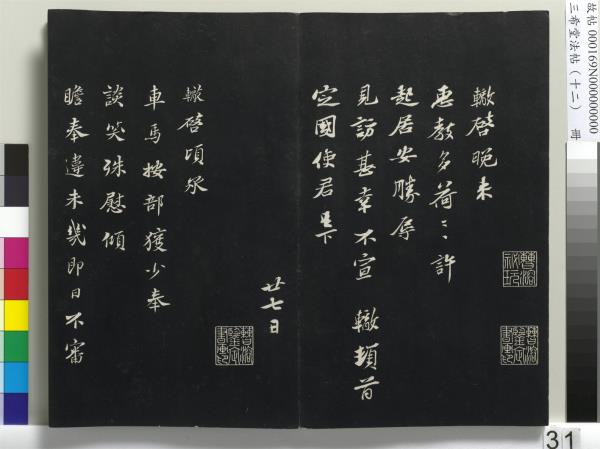 故帖 000169N000000000
三希堂法帖（十二） 冊
轍啓晚來
惠教多荷〻許
起居安勝辱
見訪甚幸不宣 轍頓首
定國使君足下
廿七日
轍啓頃承
車馬按部獲少奉
談笑殊慰傾
瞻奉違未幾即日不審
31